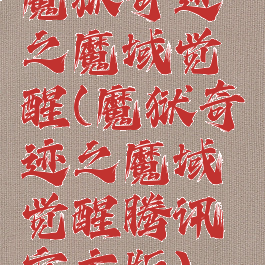 魔狱奇迹
之魔域觉
醒(魔狱奇
迹之魔域
觉醒腾讯
官方版)